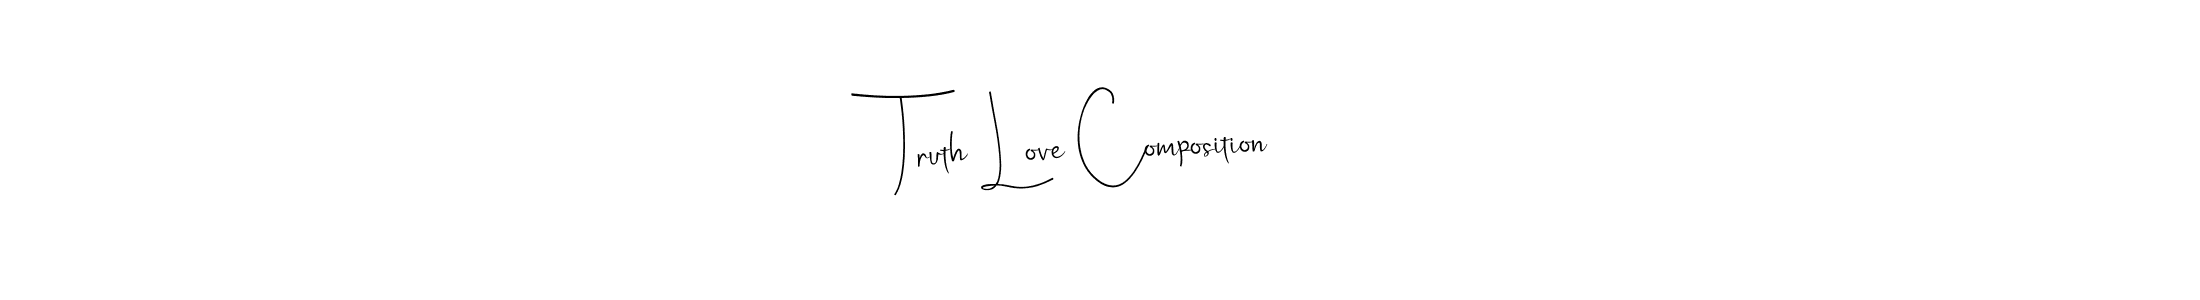 Truth Love Composition